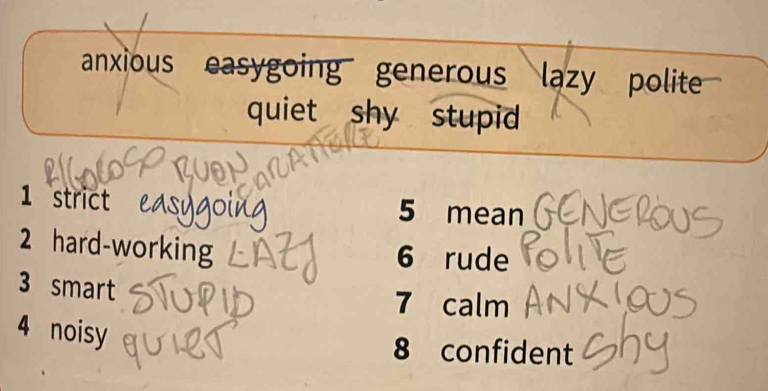 anxious easygoing generous lazy polite
quiet shy stupid
RIGOROSO BUON CARATTERE
1 strict easygoing
2 hard-working LAZY
3 smart STUPID
4 noisy quiet
5 mean GENEROUS
6 rude POLITE
7 calm ANXIOUS
8 confident Shy